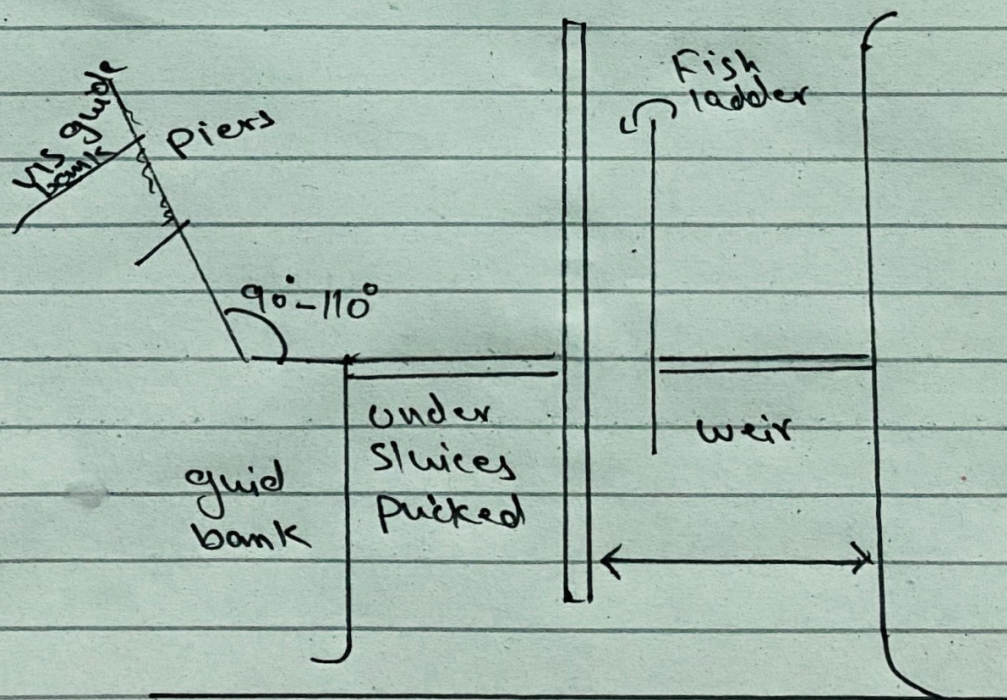 Y/S guide
bank
Piers
90°-110°
Fish
ladder
under
Sluices
Pucked
weir
guid
bank